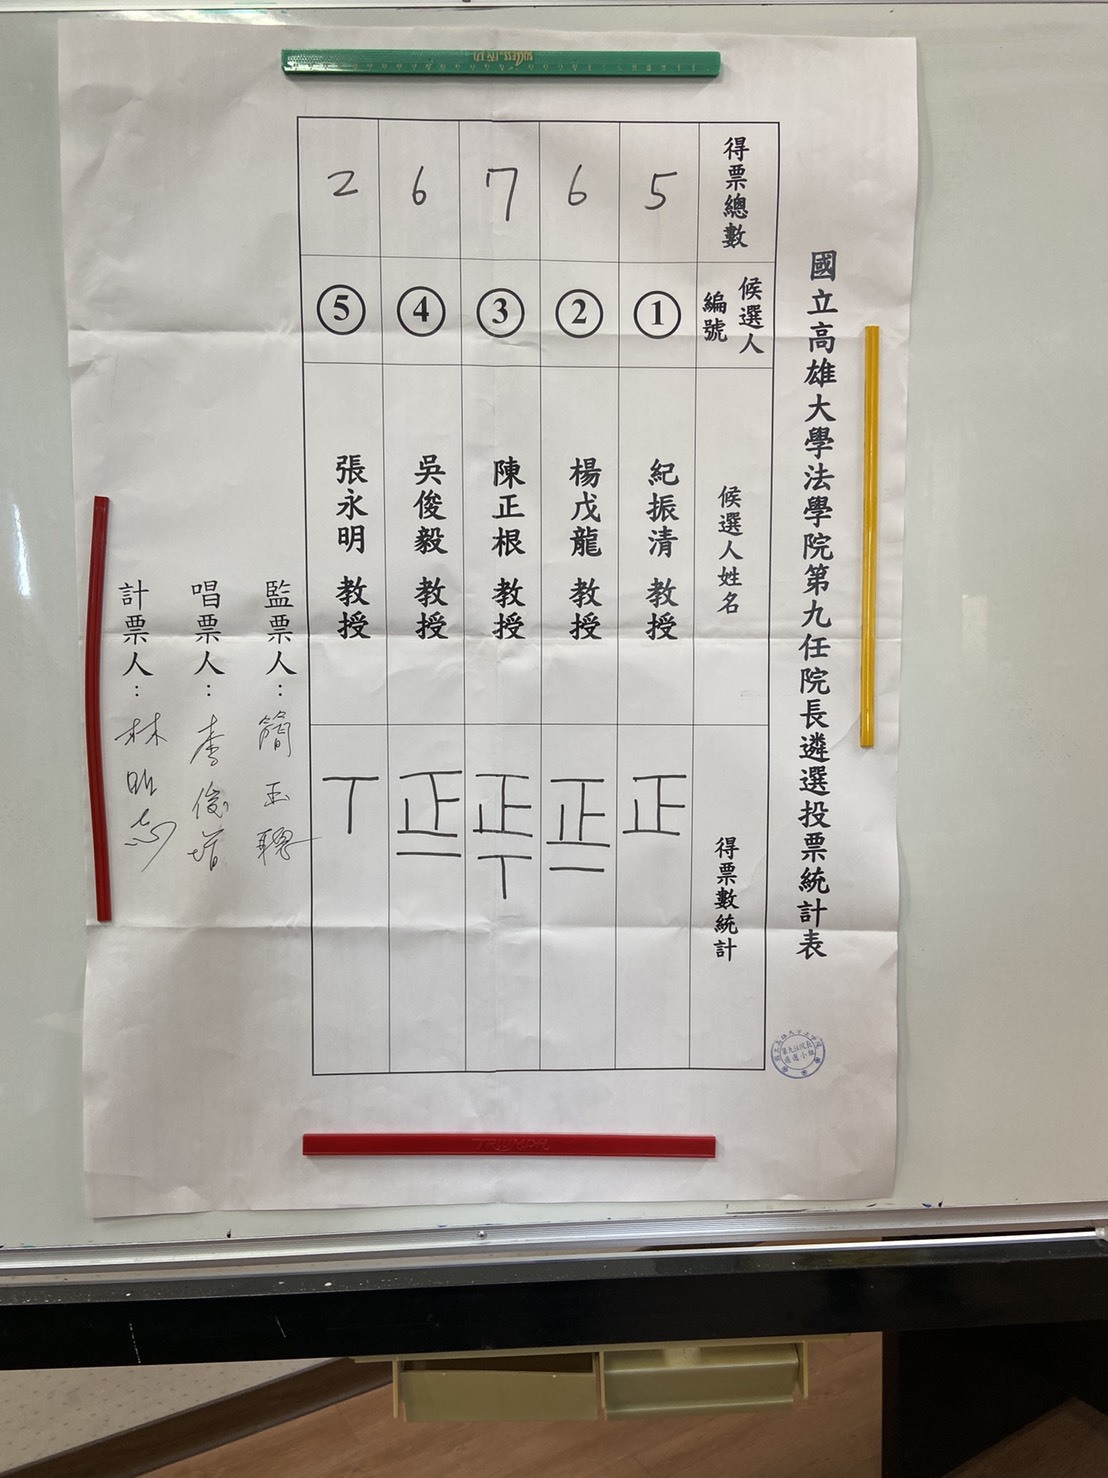 國立高雄大學法學院第九任院長遴選投票統計表
得票總數
候選人
編號
候選人姓名
得票數統計
5
1
紀振清 教授
正
6
2
楊戊龍 教授
正一
7
3
陳正根 教授
正丅
6
4
吳俊毅 教授
正一
2
5
張永明 教授
丅
監票人：簡玉聰
唱票人：李俊增
計票人：林昭志
SUCCESS
TRIUMPH